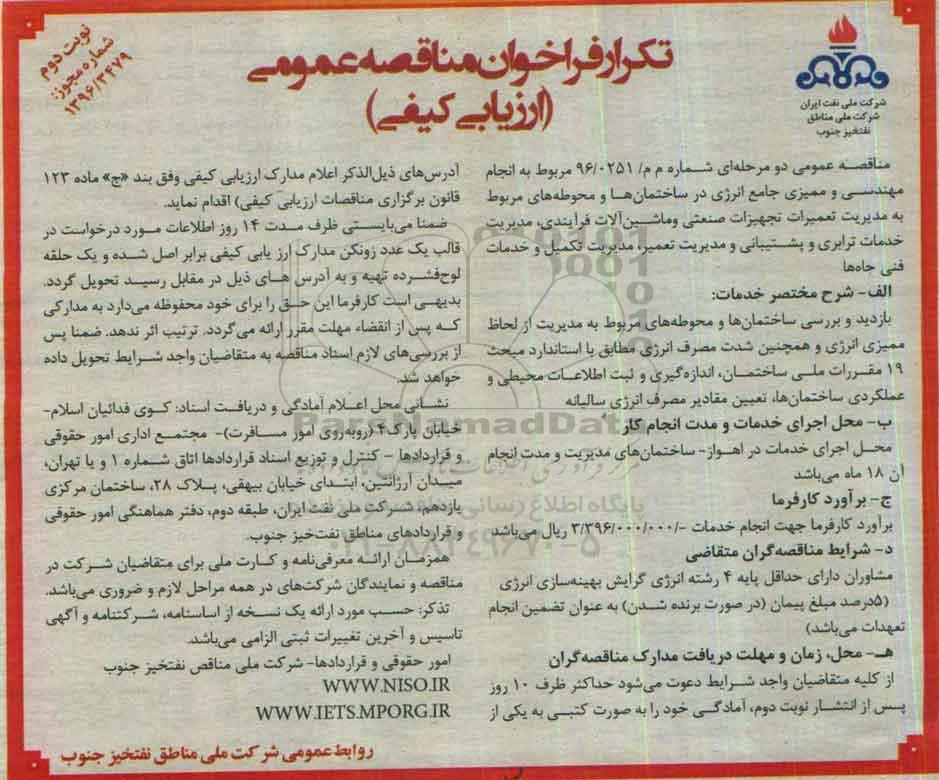 نوبت دوم
شماره مجوز:
۱۳۹۶/۳۴۷۹
تکرار فراخوان مناقصه عمومی
(ارزیابی کیفی)
شرکت ملی نفت ایران
شرکت ملی مناطق
نفتخیز جنوب
مناقصه عمومی دو مرحله‌ای شماره م م/ ۹۶/۰۲۵۱ مربوط به انجام
مهندسی و ممیزی جامع انرژی در ساختمان‌ها و محوطه‌های مربوط
به مدیریت تعمیرات تجهیزات صنعتی وماشین‌آلات فرآیندی، مدیریت
خدمات ترابری و پشتیبانی و مدیریت تعمیر، مدیریت تکمیل و خدمات
فنی جاه‌ها
الف- شرح مختصر خدمات:
بازدید و بررسی ساختمان‌ها و محوطه‌های مربوط به مدیریت از لحاظ
ممیزی انرژی و همچنین شدت مصرف انرژی مطابق با استاندارد مبحث
۱۹ مقررات ملی ساختمان، اندازه‌گیری و ثبت اطلاعات محیطی و
عملکردی ساختمان‌ها، تعیین مقادیر مصرف انرژی سالیانه
ب- محل اجرای خدمات و مدت انجام کار
محل اجرای خدمات در اهواز- ساختمان‌های مدیریت و مدت انجام
آن ۱۸ ماه می‌باشد
ج- برآورد کارفرما
برآورد کارفرما جهت انجام خدمات -/۳/۳۹۶/۰۰۰/۰۰۰ ریال می‌باشد
د- شرایط مناقصه‌گران متقاضی
مشاوران دارای حداقل پایه ۴ رشته انرژی گرایش بهینه‌سازی انرژی
(۵درصد مبلغ پیمان (در صورت برنده شدن) به عنوان تضمین انجام
تعهدات می‌باشد)
هـ- محل، زمان و مهلت دریافت مدارک مناقصه‌گران
از کلیه متقاضیان واجد شرایط دعوت می‌شود حداکثر ظرف ۱۰ روز
پس از انتشار نوبت دوم، آمادگی خود را به صورت کتبی به یکی از
آدرس‌های ذیل‌الذکر اعلام مدارک ارزیابی کیفی وفق بند «ج» ماده ۱۲۳
قانون برگزاری مناقصات ارزیابی کیفی) اقدام نماید.
ضمنا می‌بایستی ظرف مدت ۱۴ روز اطلاعات مورد درخواست در
قالب یک عدد زونکن مدارک ارز یابی کیفی برابر اصل شده و یک حلقه
لوح‌فشرده تهیه و به آدرس های ذیل در مقابل رسید تحویل گردد.
بدیهی است کارفرما این حق را برای خود محفوظه می‌دارد به مدارکی
که پس از انقضاء مهلت مقرر ارائه می‌گردد. ترتیب اثر ندهد. ضمنا پس
از بررسی‌های لازم اسناد مناقصه به متقاضیان واجد شرایط تحویل داده
خواهد شد.
نشانی محل اعلام آمادگی و دریافت اسناد: کوی فدائیان اسلام-
خیابان پارک۴ (روبه‌روی امور مسافرت)- مجتمع اداری امور حقوقی
و قراردادها - کنترل و توزیع اسناد قراردادها اتاق شماره ۱ و یا تهران،
میدان آرژانتین، ابتدای خیابان بیهقی، پلاک ۲۸، ساختمان مرکزی
یازدهم، شرکت ملی نفت ایران، طبقه دوم، دفتر هماهنگی امور حقوقی
و قراردادهای مناطق نفت‌خیز جنوب.
همزمان ارائه معرفی‌نامه و کارت ملی برای متقاضیان شرکت در
مناقصه و نمایندگان شرکت‌های در همه مراحل لازم و ضروری می‌باشد.
تذکر: حسب مورد ارائه یک نسخه از اساسنامه، شرکتنامه و آگهی
تاسیس و آخرین تغییرات ثبتی الزامی می‌باشد.
امور حقوقی و قراردادها- شرکت ملی مناقص نفتخیز جنوب
WWW.NISO.IR
WWW.IETS.MPORG.IR
روابط عمومی شرکت ملی مناطق نفتخیز جنوب
ParsNamadData
پایگاه اطلاع رسانی